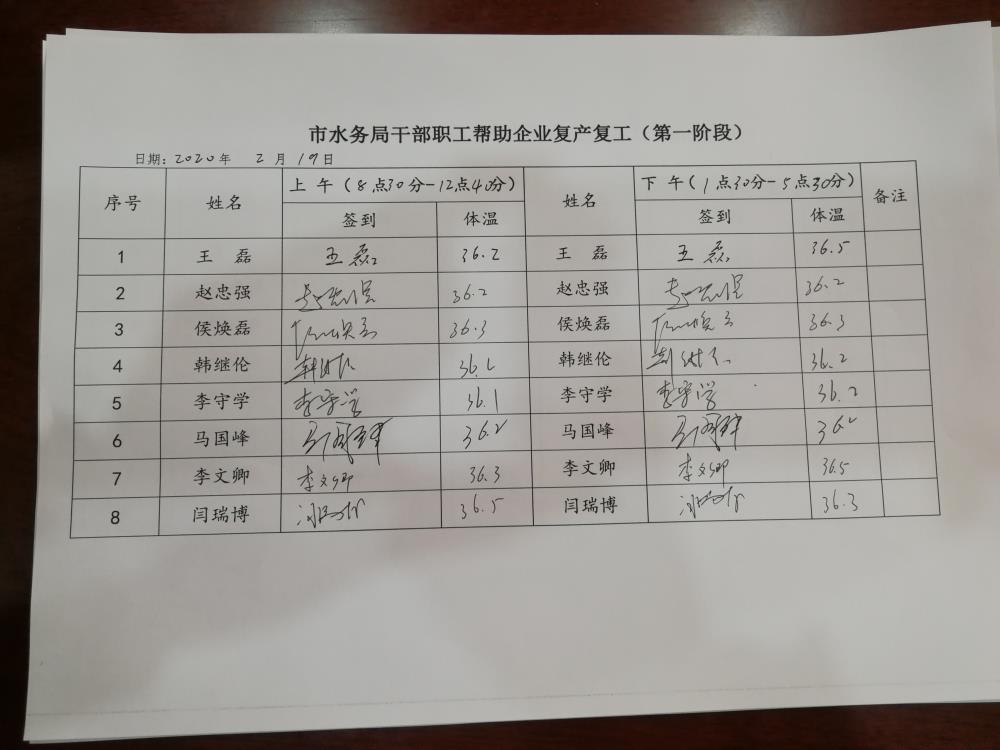 市水务局干部职工帮助企业复产复工（第一阶段）
日期：2020年 2月19日
序号 姓名 上午（8点30分-12点40分） 姓名 下午（1点30分-5点30分） 备注
签到 体温 签到 体温
1 王 磊 王磊 36.2 王 磊 王磊 36.5
2 赵忠强 赵忠强 36.2 赵忠强 赵忠强 36.2
3 侯焕磊 36.3 侯焕磊 36.3
4 韩继伦 韩继伦 韩继伦 36.2
5 李守学 李守学 36.1 李守学 李守学 36.2
6 马国峰 马国峰 36.2 马国峰 马国峰 36.2
7 李文卿 李文卿 36.3 李文卿 李文卿 36.5
8 闫瑞博 36.5 闫瑞博 36.3